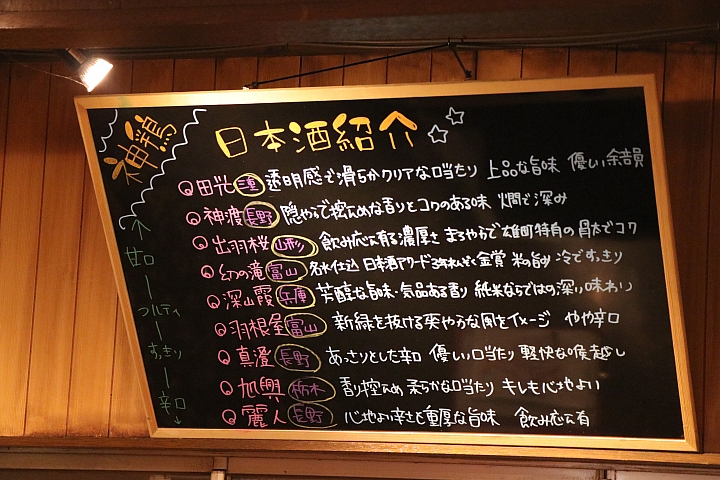 神鶏
日本酒紹介
田光 三重 透明感で滑らかクリアな口当たり 上品な旨味 優しい余韻
神渡 長野 隠やかで控えめな香りとコクのある味 燗で深み
出羽桜 山形 飲み応え有る濃厚さ まろやかで雄町特有の骨太でコク
幻の滝 富山 名水仕込 日本酒アワード3年れんぞく金賞 米の旨み 冷ですっきり
深山霞 兵庫 芳醇な旨味・気品ある香り 純米ならではの深い味わい
羽根屋 富山 新緑を抜ける爽やかな風をイメージ やや辛口
真澄 長野 あっさりとした辛口 優しい口当たり 軽快な喉越し
旭興 栃木 香り控えめ 柔らかな口当たり キレも心地よい
麗人 長野 心地よい辛さと重厚な旨味 飲み応え有
甘口
フルーティ
すっきり
辛口